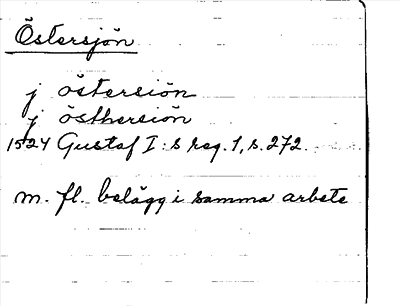 Östersjön
j östersiön
j östhersiön
1524 Gustaf I:s reg. 1, s. 272.
m. fl. belägg i samma arbete